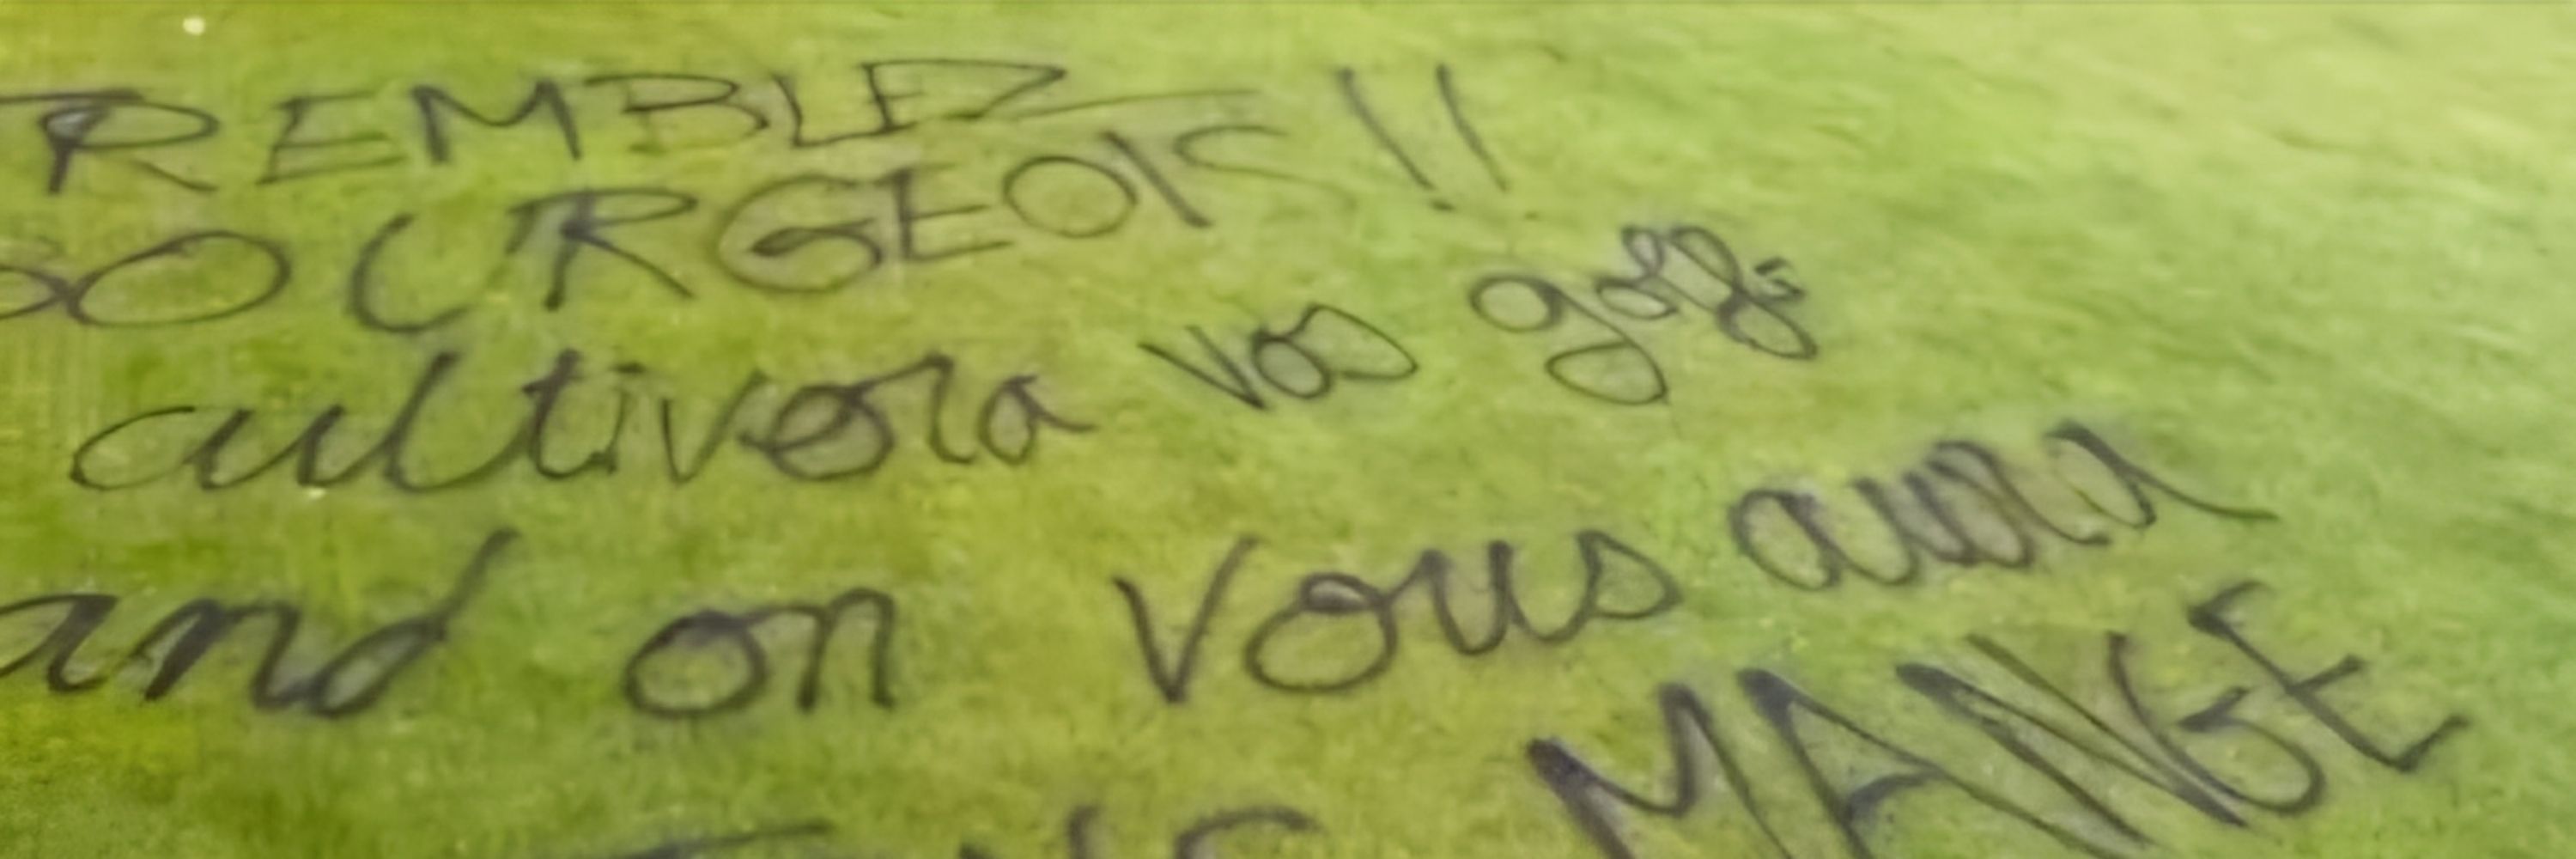 TREMBLEZ
BOURGEOIS !!
cultivera vos golfs
and on vous aura
MANGE